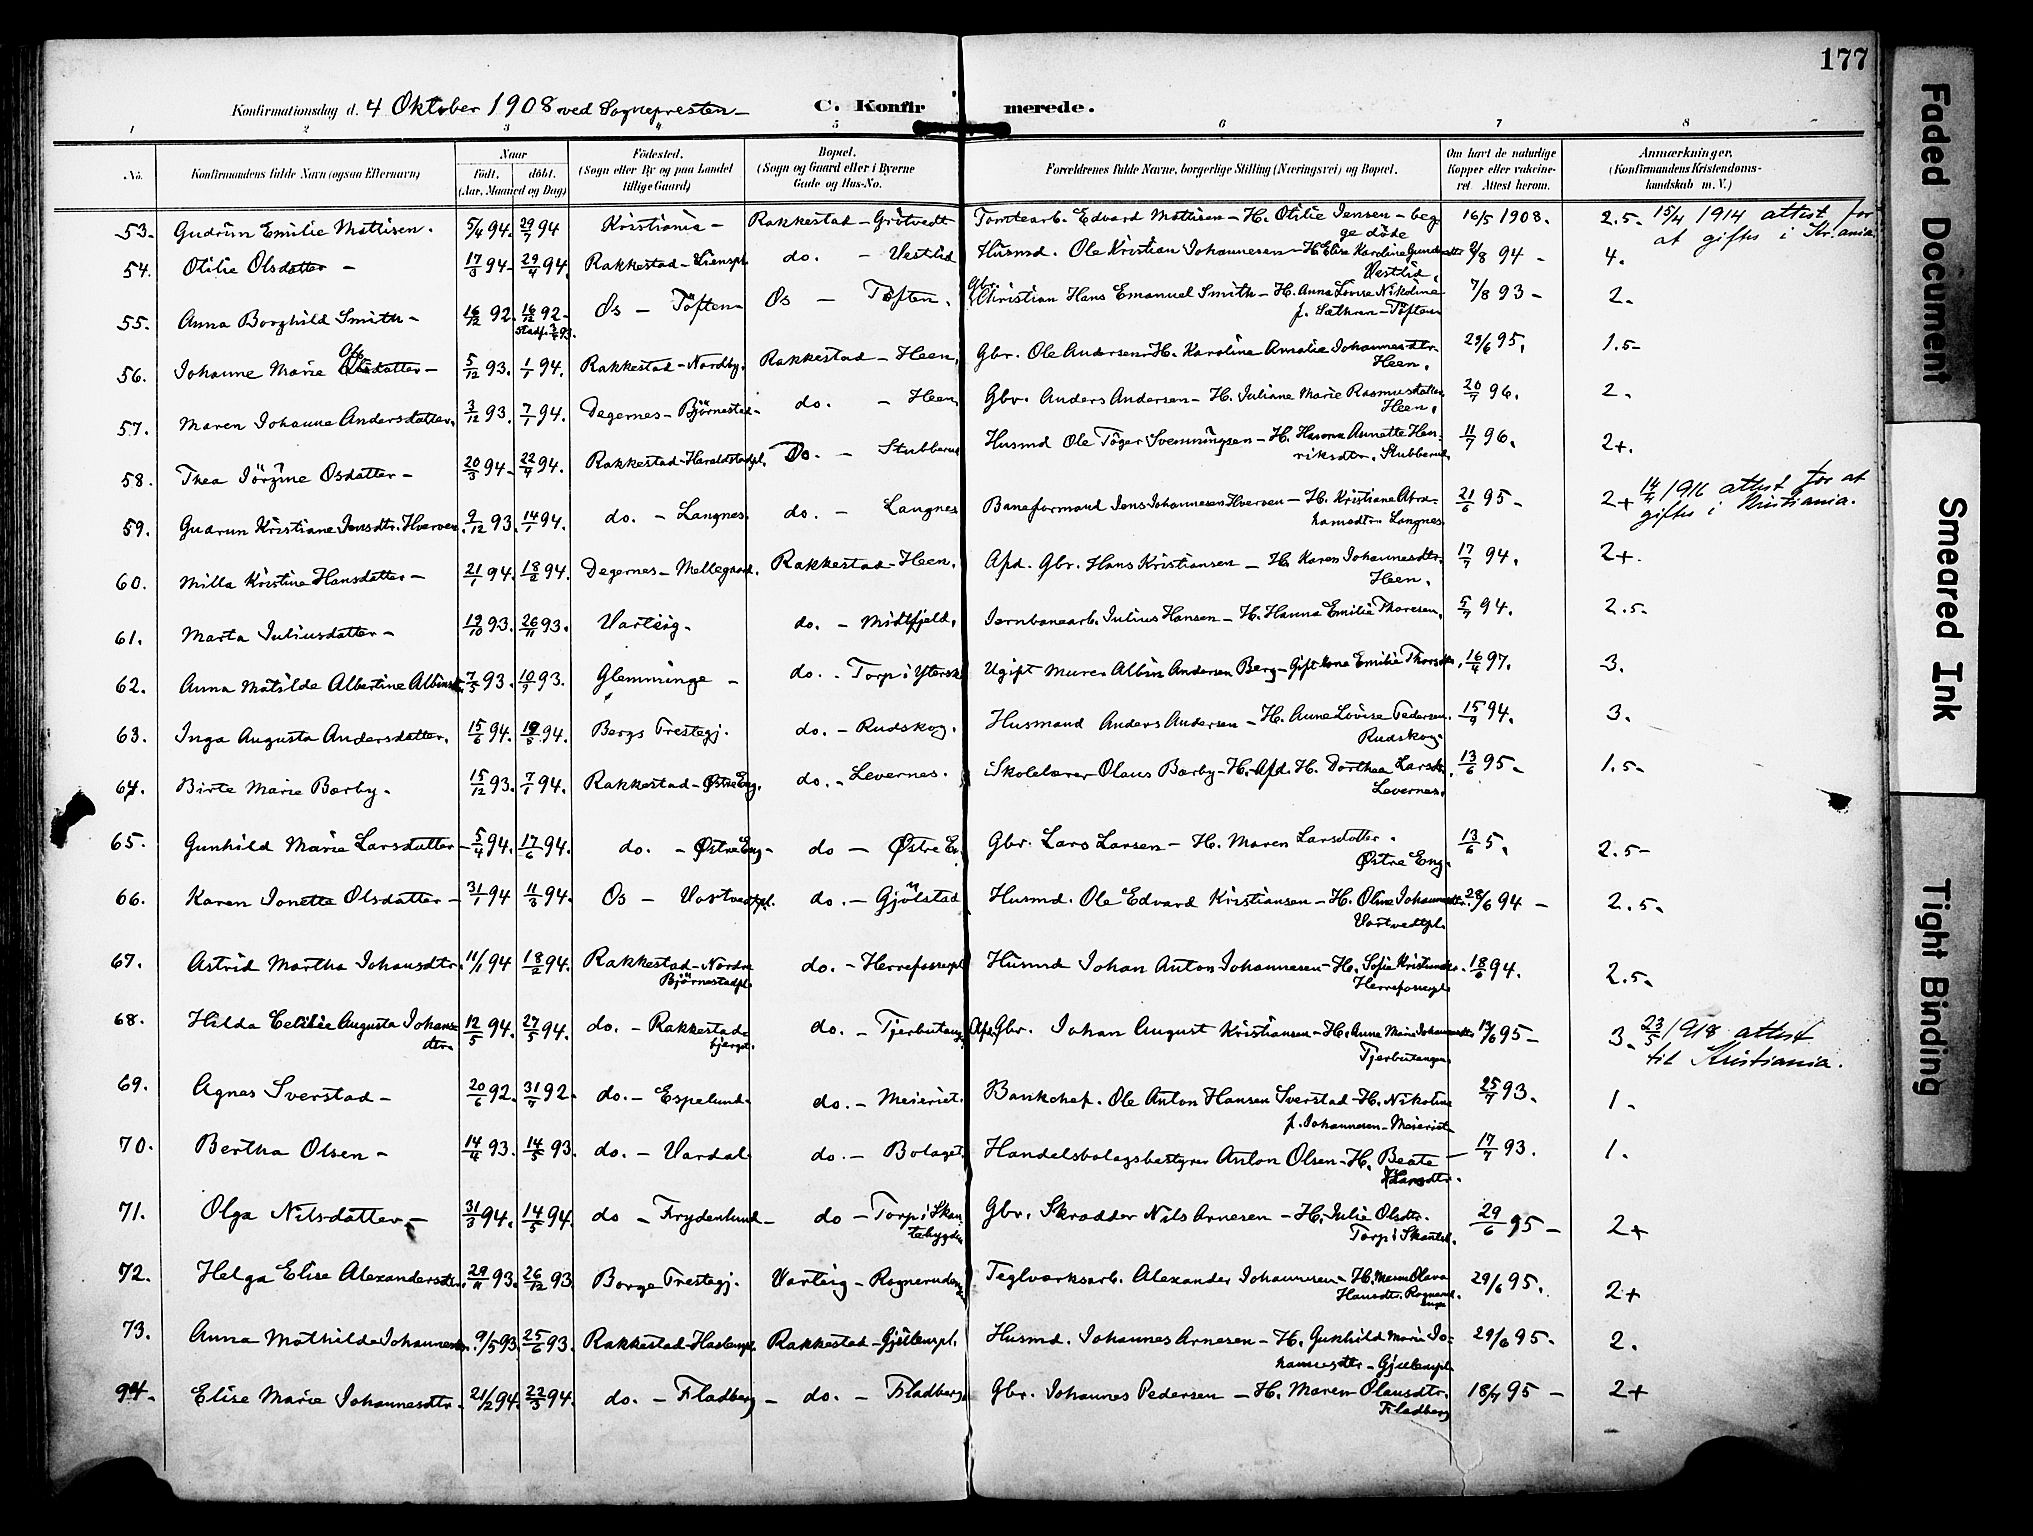 177
Konfirmationsdag d. 4 Oktober 1908 ved Sognepresten
C. Konfirmerede.
1 2 3 4 5 6 7 8
No. Konfirmandens fulde Navn (ogsaa Efternavn) Naar Født. døbt. (Aar, Maaned og Dag) Fødested. (Sogn eller By og paa Landet tillige Gaard) Bopæl. (Sogn og Gaard eller i Byerne Gade og Hus-No. Forældrenes fulde Navne, borgerlige Stilling (Næringsvei) og Bopæl. Om havt de naturlige Kopper eller vaksineret Attest herom. Anmærkninger. (Konfirmandens Kristendomskundskab m. V.)
53. Gudrun Emilie Mattisen. 5/4 94. 29/7 94 Kristiania - Rakkestad - Grötvedt Tomtearb. Edvard Mattisen - H. Otilie Jensen - begge döde 16/5 1908. 2.5- 15/4 1914 attest for at giftes i Kr.ania
54. Otilie Olsdatter - 17/3 94- 29/4 94. Rakkestad - do. - Vestlid Husmd. Ole Kristian Johannesen - H. Elise Karoline Vestlid. /8 94 - 4.
55. Anna Borghild Smith - 16/12 92. 16/12 92- Os - Töften Os - Töften. Gbr. Christian Hans Emanuel Smith - H. Anna Lovise Nikoline f. Sæthren - Töften 7/8 93 - 2.
56. Johanne Marie Olsdatter - 5/12 93. 1/1 94. Rakkestad - Nordby. Rakkestad - Heen. Gbr. Ole Andersen - H. Karoline Amalie Johannesdtr. Heen. 29/6 95. 1.5-
57. Maren Johanne Andersdatter. 3/12 93. 7/1 94. Degernes - Björnestad do. - Heen Gbr. Anders Andersen - H. Juliane Marie Rasmusdatter Heen. 20/7 96. 2.
58. Thea Jörgine Osdatter - 20/3 94- 22/4 94. Rakkestad - Haraldstadpl. Do. - Stubberud Husmd Ole Töger Svenningsen - H. Hanna Annette Henriksdtr. Stubberud 11/7 96. 2+.
59. Gudrun Kristiane Jensdtr. Hverven 9/12 93. 14/1 94. do. - Langnes do. - Langnes Baneformand Jens Johannesen Hverven - H. Kristiane Abrahamsdtr Langnes 21/6 95 - 2+ 14/4 1916 attest for at giftes i Kristiania.
60. Milla Kristine Hansdatter - 21/1 94. 18/2 94. Degernes - Mellegaard. Rakkestad - Heen. Afd. Gbr. Hans Kristiansen - H. Karen Johannesdtr. Heen. 17/7 94. 2+.
61. Marta Juliusdatter - 19/10 93. 26/11 93. Varteig - do. - Midtfjeld. Jernbanearb. Julius Hansen - H. Hanna Emilie Thoresen. 5/7 94. 2.5-
62. Anna Matilde Albertine 7/5 93. 10/9 93. Glemminge - do. - Torp i Ugift Murer Albin Andersen Berg - Gift kone Emilie 16/4 97. 3.
63. Inga Augusta Andersdatter. 15/6 94. 94. Bergs Prestegj. do. - Rudskog. Husmand Anders Andersen - H. Anne Lovise Pedersen. Rudskog. 15/9 94. 3.
64. Birte Marie Børby - 15/12 93. 7/1 94. Rakkestad - Østre Eng. do. - Levernes. Skolelærer Olaus Børby - H. Afd. H. Dorthea Larsdtr. Levernes. 13/6 95 - 1.5-
65. Gunhild Marie Larsdatter - 5/4 94. 17/6 94. do. - Østre Eng - do - Østre Eng Gbr. Lars Larsen - H. Maren Larsdatter. Østre Eng. 13/6 5. 2.5-
66. Karen Jonette Olsdatter - 31/1 94 11/3 94. Os - Vartvedtpl. do. - Gjölstad Husmd. Ole Edvard Kristiansen - H. Oline Vartvedtpl. 28/6 94 - 2.5-
67. Astrid Martha Johansdtr. 11/1 94 18/2 94. Rakkestad - Nordre Björnestadpl. do. - Herrefossepl Husmd Johan Anton Johannesen - H. Sofie Herrefossepl 18/6 94. 2.5-
68. Hilda Augusta Johansdtr. 12/5 94. 27/5 94. do. - Rakkestadbjerget. do. - Tjerbutangen Afd. Gbr. Johan August Kristiansen - H. Anne Marie Tjerbutangen /6 95 - 3. 23/5 1918 attest til Kristiania.
69. Agnes Sverstad - 20/6 92. 31/7 92. do. - Espelund do. - Meieriet. Bankchef. Ole Anton Hansen Sverstad - H. Nikoline f. Johannesen - Meieriet 25/7 93. 1.
70. Bertha Olsen - 14/4 93. 14/5 93. do. - Vardal do. - Bolaget. Handelsbolagsbestyrer Anton Olsen - H. Beate - 17/7 93. 1.
71. Olga Nilsdatter - 31/3 94. 14/5 94. do - Frydenlund - do - Torp i Skautebygden Gbr. Skrædder Nils Arnesen - H. Julie Olsdtr. Torp i Skauteb. 29/6 95 - 2+
72. Helga Elise Alexandersdtr. 29/11 93. 26/12 93 Borge Prestegj. Varteig - Teglværksarb. Alexander Johannesen - H. Maren Olava Hansdtr. 29/6 95. 2+
73. Anna Mathilde Johannesdtr. 9/5 93. 25/6 93. Rakkestad - Rakkestad - Gjellenspl. Husmd. Johannes Arnesen - H. Gunhild Marie Johannesdtr - Gjellenpl. 29/6 95. 2.
94. Elise Marie Johannesdtr. 21/2 94. 22/3 94. do. - Fladberg - do. - Fladberg. Gbr. Johannes Pedersen - H. Maren Olausdtr. Fladberg 18/7 95 - 2+
Faded Document
Smeared Ink
Tight Binding